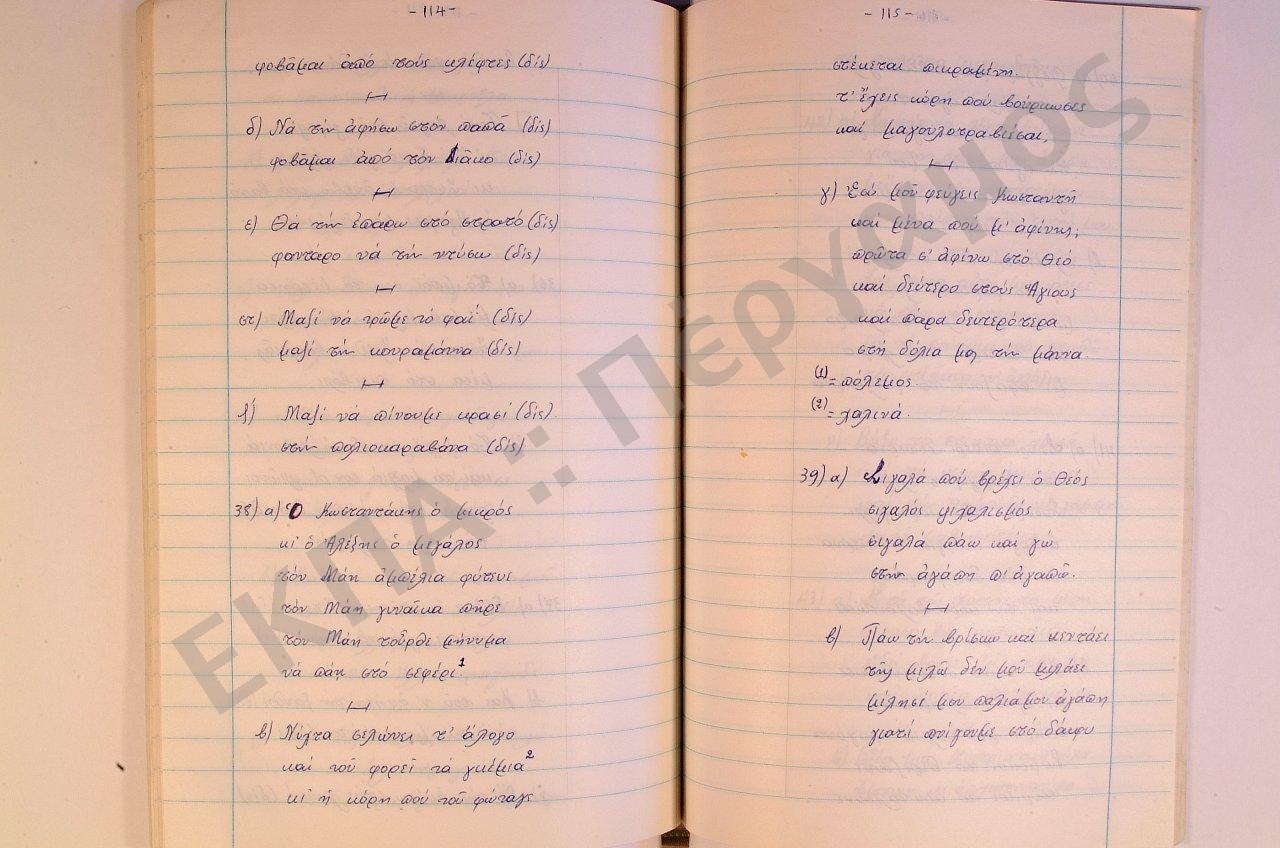 - 114 -
φοβᾶμαι ἀπό τούς κλέφτες (δίς)
δ) Νά τήν ἀφήσω στόν παπᾶ (δίς)
φοβᾶμαι ἀπό τόν διάκο (δίς)
ε) Θά τήν ἐπάρω στό στρατό (δίς)
φαντάρο νά τήν ντύσω (δίς)
στ) Μαζί νά τρῶμε τό φαΐ (δίς)
μαζί τήν κουραμάνα (δίς)
ζ) Μαζί νά πίνουμε κρασί (δίς)
στήν παλιοκαραβάνα (δίς)
38) α) Ὁ Κωσταντάκης ὁ μικρός
κι' ὁ Ἀλέξης ὁ μεγάλος
τόν Μάη ἀμπέλια φύτευε
τόν Μάη γυναῖκα πῆρε
τόν Μάη τοὖρθε μήνυμα
νά πάη στό σεφέρι 1
β) Νύχτα σελώνει τ' ἄλογο
καί τοῦ φορεῖ τά γκέμια 2
κι' ἡ κόρη πού τοῦ φώταγε
- 115 -
στέκεται πικραμένη.
τ' ἔχεις κόρη πού βούρκωσες
καί μαγουλοτραβιέσαι;
γ) Ἐσύ μοῦ φεύγεις Κωσταντῆ
καί μένα ποῦ μ' ἀφίνης;
πρῶτα σ' ἀφίνω στό Θεό
καί δεύτερο στούς Ἅγιους
καί πάρα δευτερότερα
στή δόλια μας τήν μάννα
(1) = πόλεμος.
(2) = χαλινά.
39) α) Σιγαλά πού βρέχει ὁ Θεός
σιγαλός ψιχαλισμός
σιγαλά πάω καί γώ
στήν ἀγάπη π' ἀγαπῶ.
β) Πάω τήν βρίσκω καί κεντάει
τῆς μιλῶ δέν μοῦ μιλάει
μίλησέ μου παλιά μου ἀγάπη
γιατί πνίγουμε στό δάκρυ
ΕΚΠΑ :: Πέργαμος